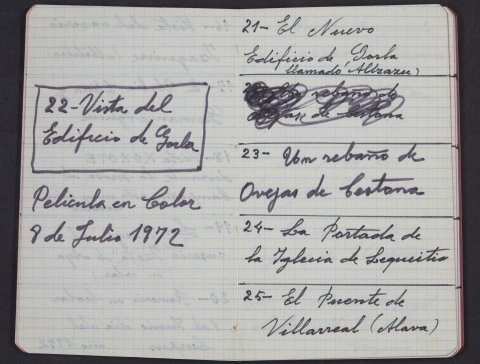 22-Vista del
Edificio de Gorla
Pelicula en Color
8 de Julio 1972
21- El Nuevo
Edificio de Gorla
llamado Altzazu)
Un rebaño de
ovejas de
23- Un rebaño de
Ovejas de Cestona
24- La Portada de
la Iglesia de Lequeitio
25- El Puente de
Villarreal (Alava)